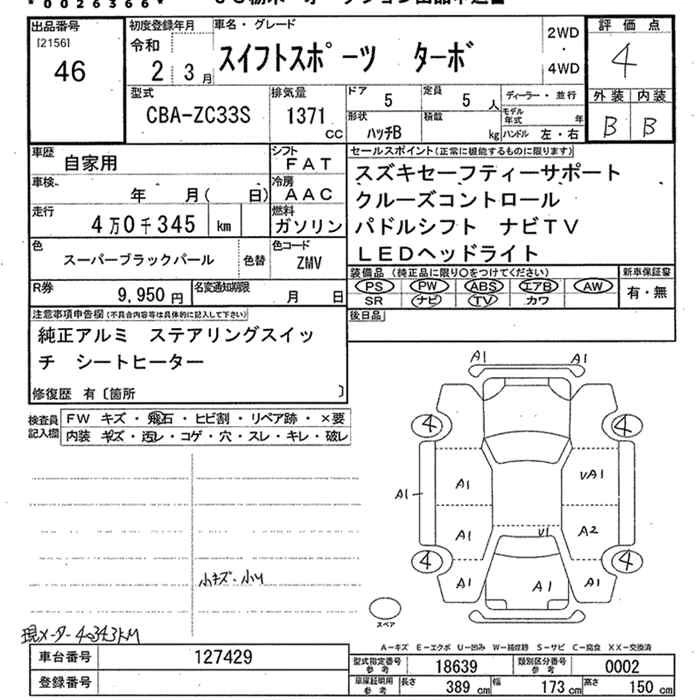 *0026366*
出品番号 初度登録年月 車名・グレード 評価点
[2156] 令和 2WD
46 2年 3月 スイフトスポーツ ターボ ・ 4
4WD
型式 排気量 ドア 5 定員 5人 ディーラー・並行 外装 内装
CBA-ZC33S 1371 cc 形状 ハッチB 積載 kg モデル年式 年 B B
ハンドル 左・右
車歴 自家用 シフト FAT セールスポイント(正常に機能するものに限ります)
車検 年 月( 日) 冷房 AAC スズキセーフティーサポート
走行 4万0千345 km 燃料 ガソリン クルーズコントロール
パドルシフト ナビTV
色 スーパーブラックパール 色替 色コード ZMV LEDヘッドライト
R券 9,950円 名変通知期限 月 日 装備品(純正品に限り○をつけてください) 新車保証書
PS PW ABS エアB AW 有・無
SR ナビ TV カワ
注意事項申告欄(不具合内容等は具体的に記入して下さい) 後日品
純正アルミ ステアリングスイッ
チ シートヒーター
修復歴 有〔箇所 〕
検査員記入欄 FW キズ・飛石・ヒビ割・リペア跡・×要
内装 キズ・汚レ・コゲ・穴・スレ・キレ・破レ
A1 A1
4 4
A1 VA1
A1
A1 V1 A2
4 4
A1 A1 A1
小キズ・小U
スペア
現メーター40343KM
A-キズ E-エクボ U-凹み W-補修跡 S-サビ C-腐食 XX-交換済
車台番号 127429 型式指定番号 参考 18639 類別区分番号 参考 0002
登録番号 車庫証明用 参考 長さ 389 cm 幅 173 cm 高さ 150 cm